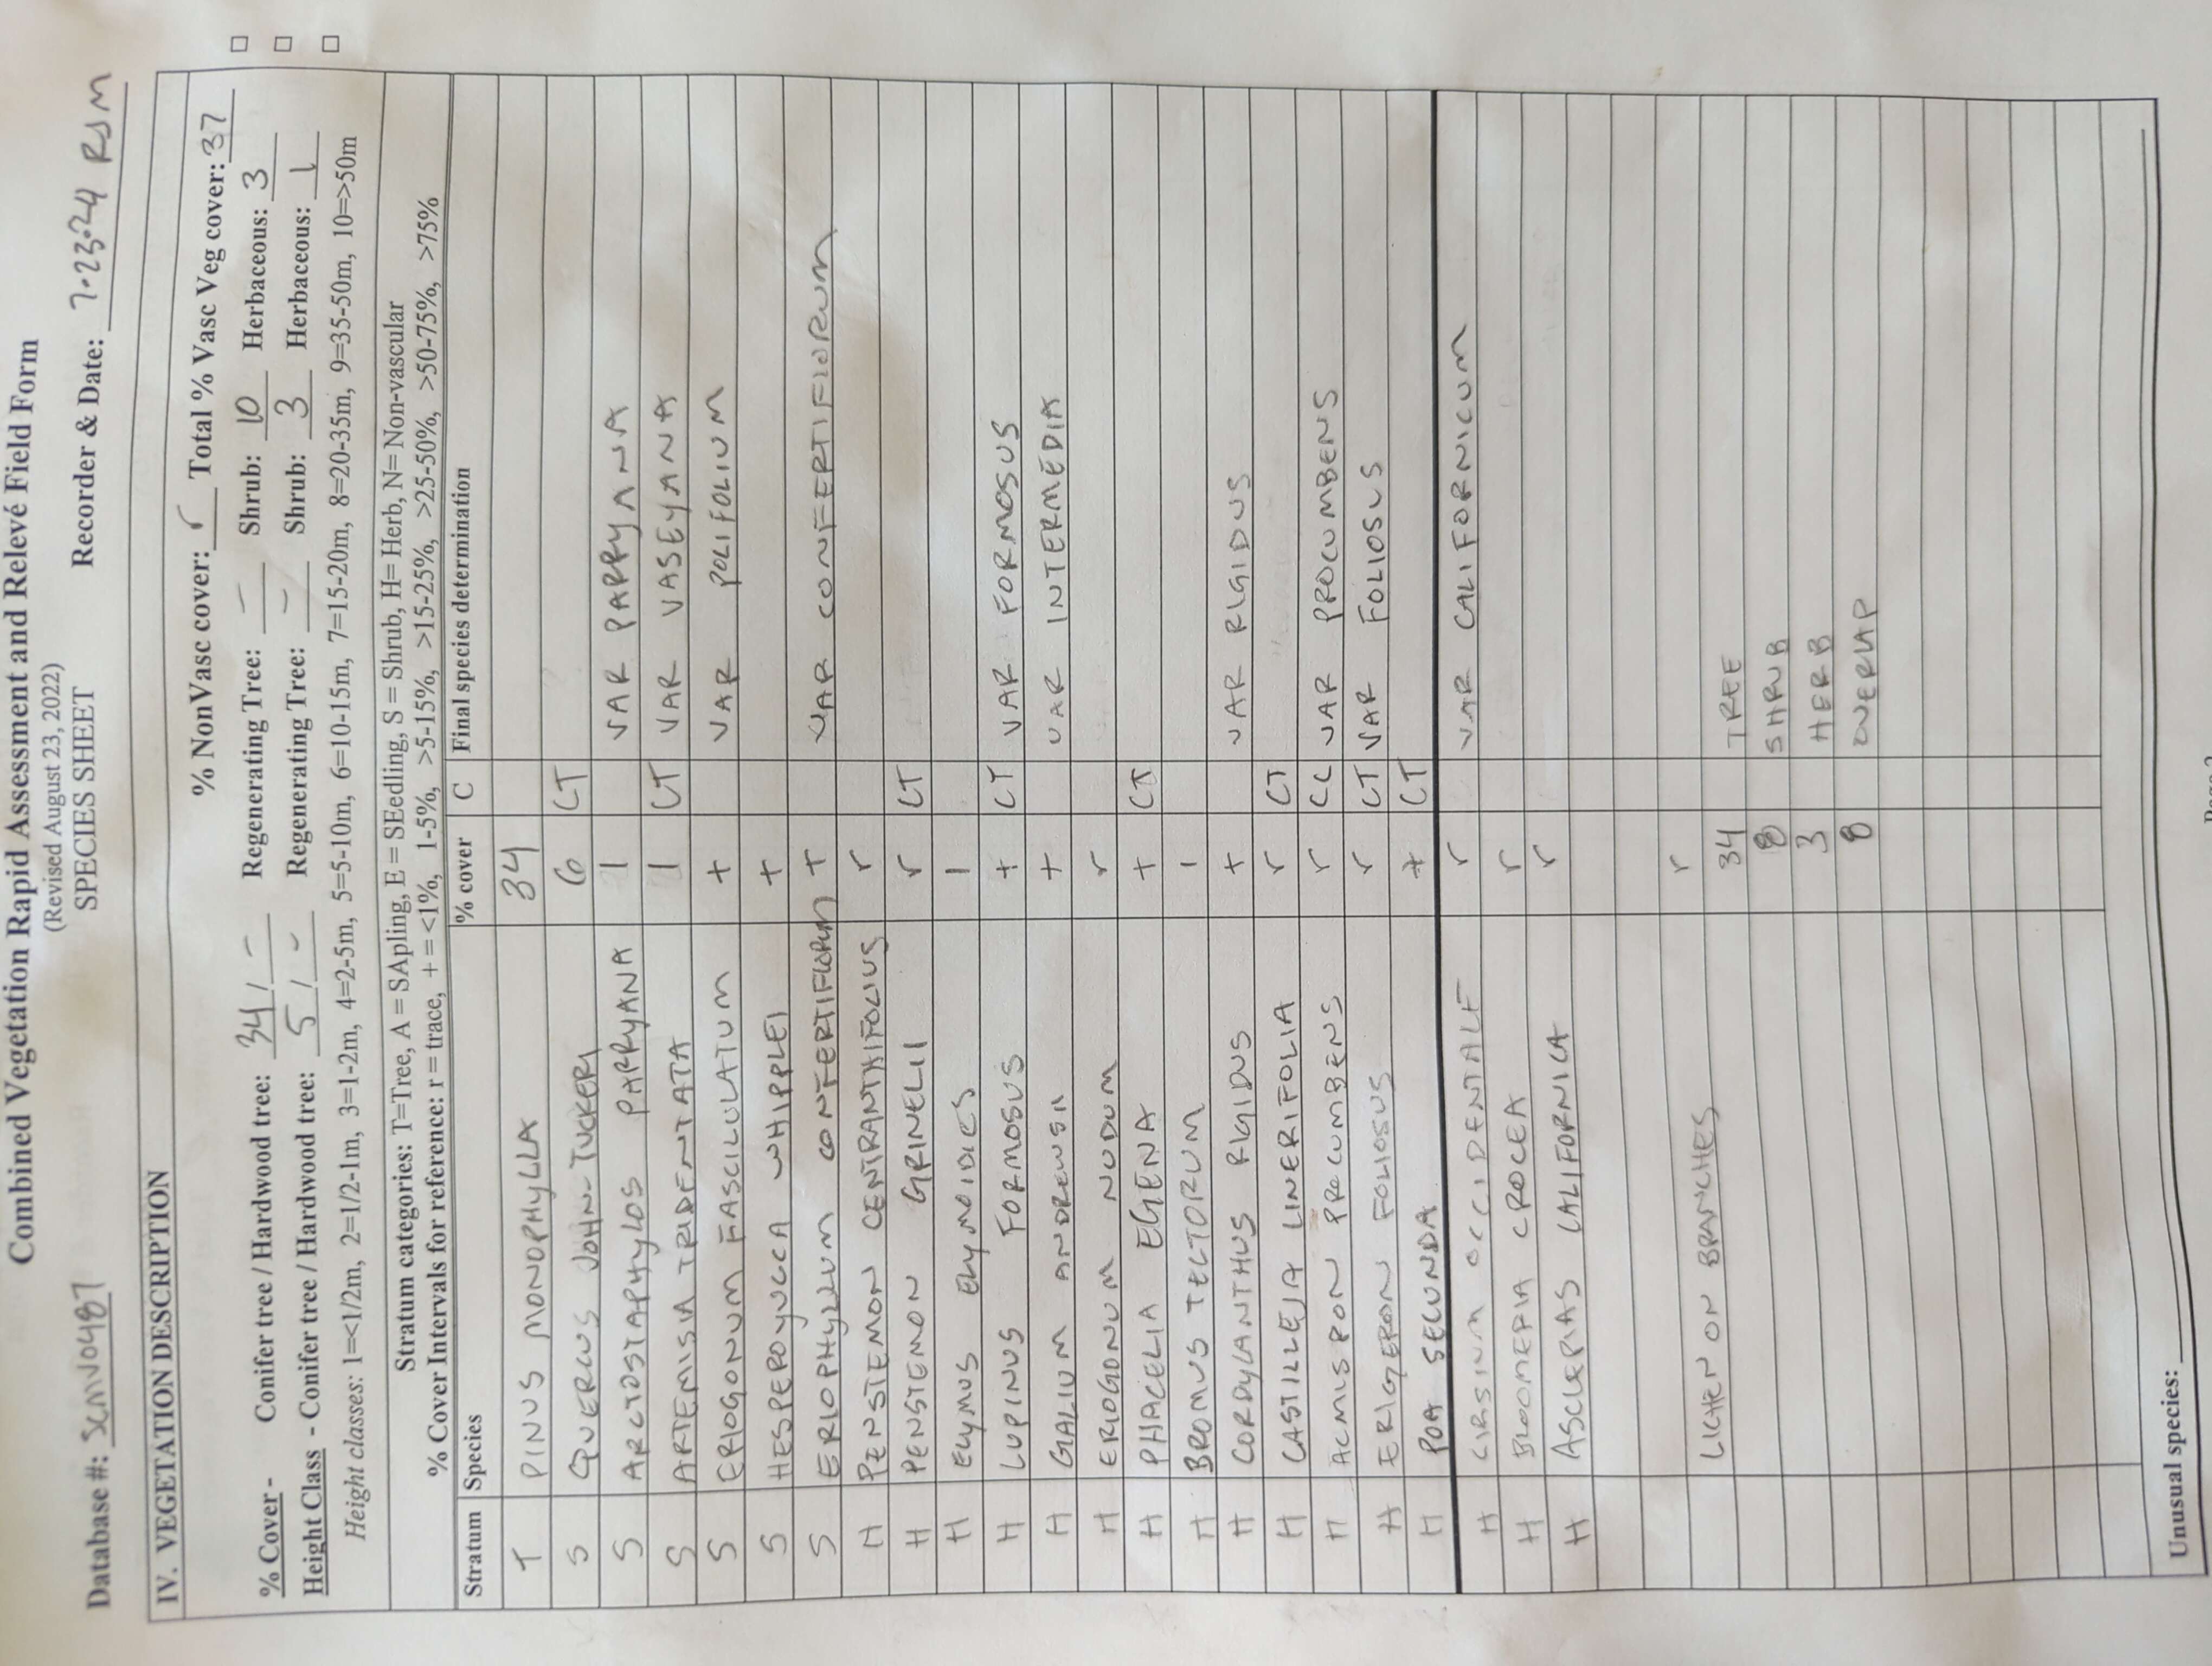 Combined Vegetation Rapid Assessment and Relevé Field Form
(Revised August 23, 2022)
SPECIES SHEET
Database #: SCMV0487 Recorder & Date: 7-23-24 RSM
IV. VEGETATION DESCRIPTION
% NonVasc cover: r Total % Vasc Veg cover: 37
% Cover - Conifer tree / Hardwood tree: 34 / - Regenerating Tree: - Shrub: 10 Herbaceous: 3
Height Class - Conifer tree / Hardwood tree: 5 / - Regenerating Tree: - Shrub: 3 Herbaceous: 1
Height classes: 1=<1/2m, 2=1/2-1m, 3=1-2m, 4=2-5m, 5=5-10m, 6=10-15m, 7=15-20m, 8=20-35m, 9=35-50m, 10=>50m
Stratum categories: T=Tree, A = SApling, E = SEedling, S = Shrub, H= Herb, N= Non-vascular
% Cover Intervals for reference: r = trace, + = <1%, 1-5%, >5-15%, >15-25%, >25-50%, >50-75%, >75%
Stratum Species % cover C Final species determination
T PINUS MONOPHYLLA 34
S QUERCUS JOHN-TUCKERI 6 CT
S ARCTOSTAPHYLOS PARRYANA 1 VAR PARRYANA
S ARTEMISIA TRIDENTATA 1 CT VAR VASEYANA
S ERIOGONUM FASCILULATUM + VAR POLIFOLIUM
S HESPEROYUCCA WHIPPLEI +
S ERIOPHYLLUM CONFERTIFLORUM + VAR CONFERTIFLORUM
H PENSTEMON CENTRANTHIFOLIUS r
H PENSTEMON GRINELII r CT
H ELYMUS ELYMOIDES 1
H LUPINUS FORMOSUS + CT VAR FORMOSUS
H GALIUM ANDREWSII + VAR INTERMEDIA
H ERIOGONUM NUDUM r
H PHACELIA EGENA + CT
H BROMUS TECTORUM 1
H CORDYLANTHUS RIGIDUS + VAR RIGIDUS
H CASTILLEJA LINERIFOLIA r CT
H ACMISPON PROCUMBENS r CL VAR PROCUMBENS
H ERIGERON FOLIOSUS r CT VAR FOLIOSUS
H POA SECUNDA + CT
H CIRSIUM OCCIDENTALE r VAR CALIFORNICUM
H BLOOMERIA CROCEA r
H ASCLEPIAS CALIFORNICA r
LICHEN ON BRANCHES r
34 TREE
8 SHRUB
3 HERB
8 OVERLAP
Unusual species: